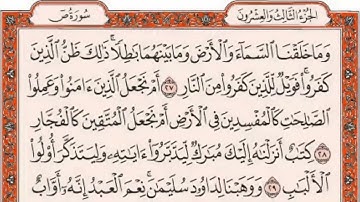 سُورَةُ صٓ
الجُزْءُ الثَّالِثُ وَالعِشْرُونَ
وَمَا خَلَقْنَا ٱلسَّمَآءَ وَٱلْأَرْضَ وَمَا بَيْنَهُمَا بَٰطِلًا ۚ ذَٰلِكَ ظَنُّ ٱلَّذِينَ
كَفَرُوا۟ ۚ فَوَيْلٌ لِّلَّذِينَ كَفَرُوا۟ مِنَ ٱلنَّارِ ٢٧ أَمْ نَجْعَلُ ٱلَّذِينَ ءَامَنُوا۟ وَعَمِلُوا۟
ٱلصَّٰلِحَٰتِ كَٱلْمُفْسِدِينَ فِى ٱلْأَرْضِ أَمْ نَجْعَلُ ٱلْمُتَّقِينَ كَٱلْفُجَّارِ
٢٨ كِتَٰبٌ أَنزَلْنَٰهُ إِلَيْكَ مُبَٰرَكٌ لِّيَدَّبَّرُوٓا۟ ءَايَٰتِهِۦ وَلِيَتَذَكَّرَ أُو۟لُوا۟
ٱلْأَلْبَٰبِ ٢٩ وَوَهَبْنَا لِدَاوُۥدَ سُلَيْمَٰنَ ۚ نِعْمَ ٱلْعَبْدُ ۖ إِنَّهُۥٓ أَوَّابٌ